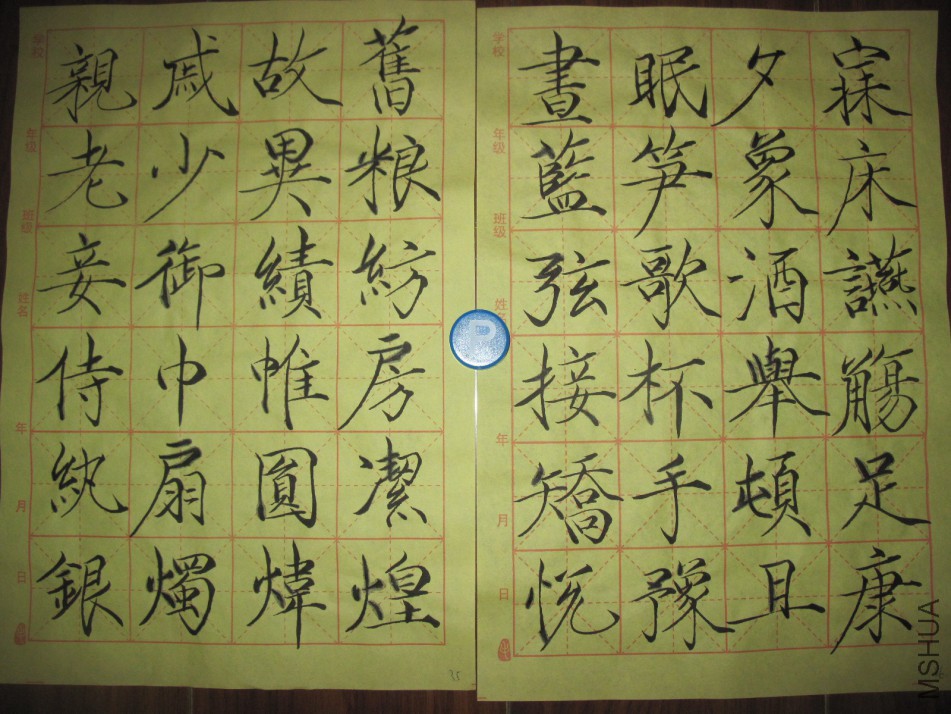 学校
年级
班级
姓名
年
月
日
親戚故舊
老少異粮
妾御績紡
侍巾帷房
紈扇圓潔
銀燭煒煌
学校
年级
班级
姓
年
月
日
晝眠夕寐
藍笋象床
弦歌酒讌
接杯舉觴
矯手頓足
悅豫且康
P
MSHUA